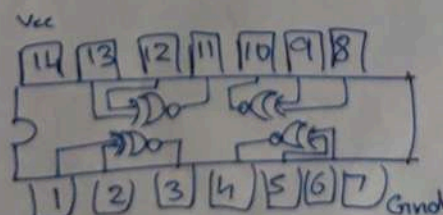 Vcc
14 13 12 11 10 9 8
1 2 3 4 5 6 7 Gnnd